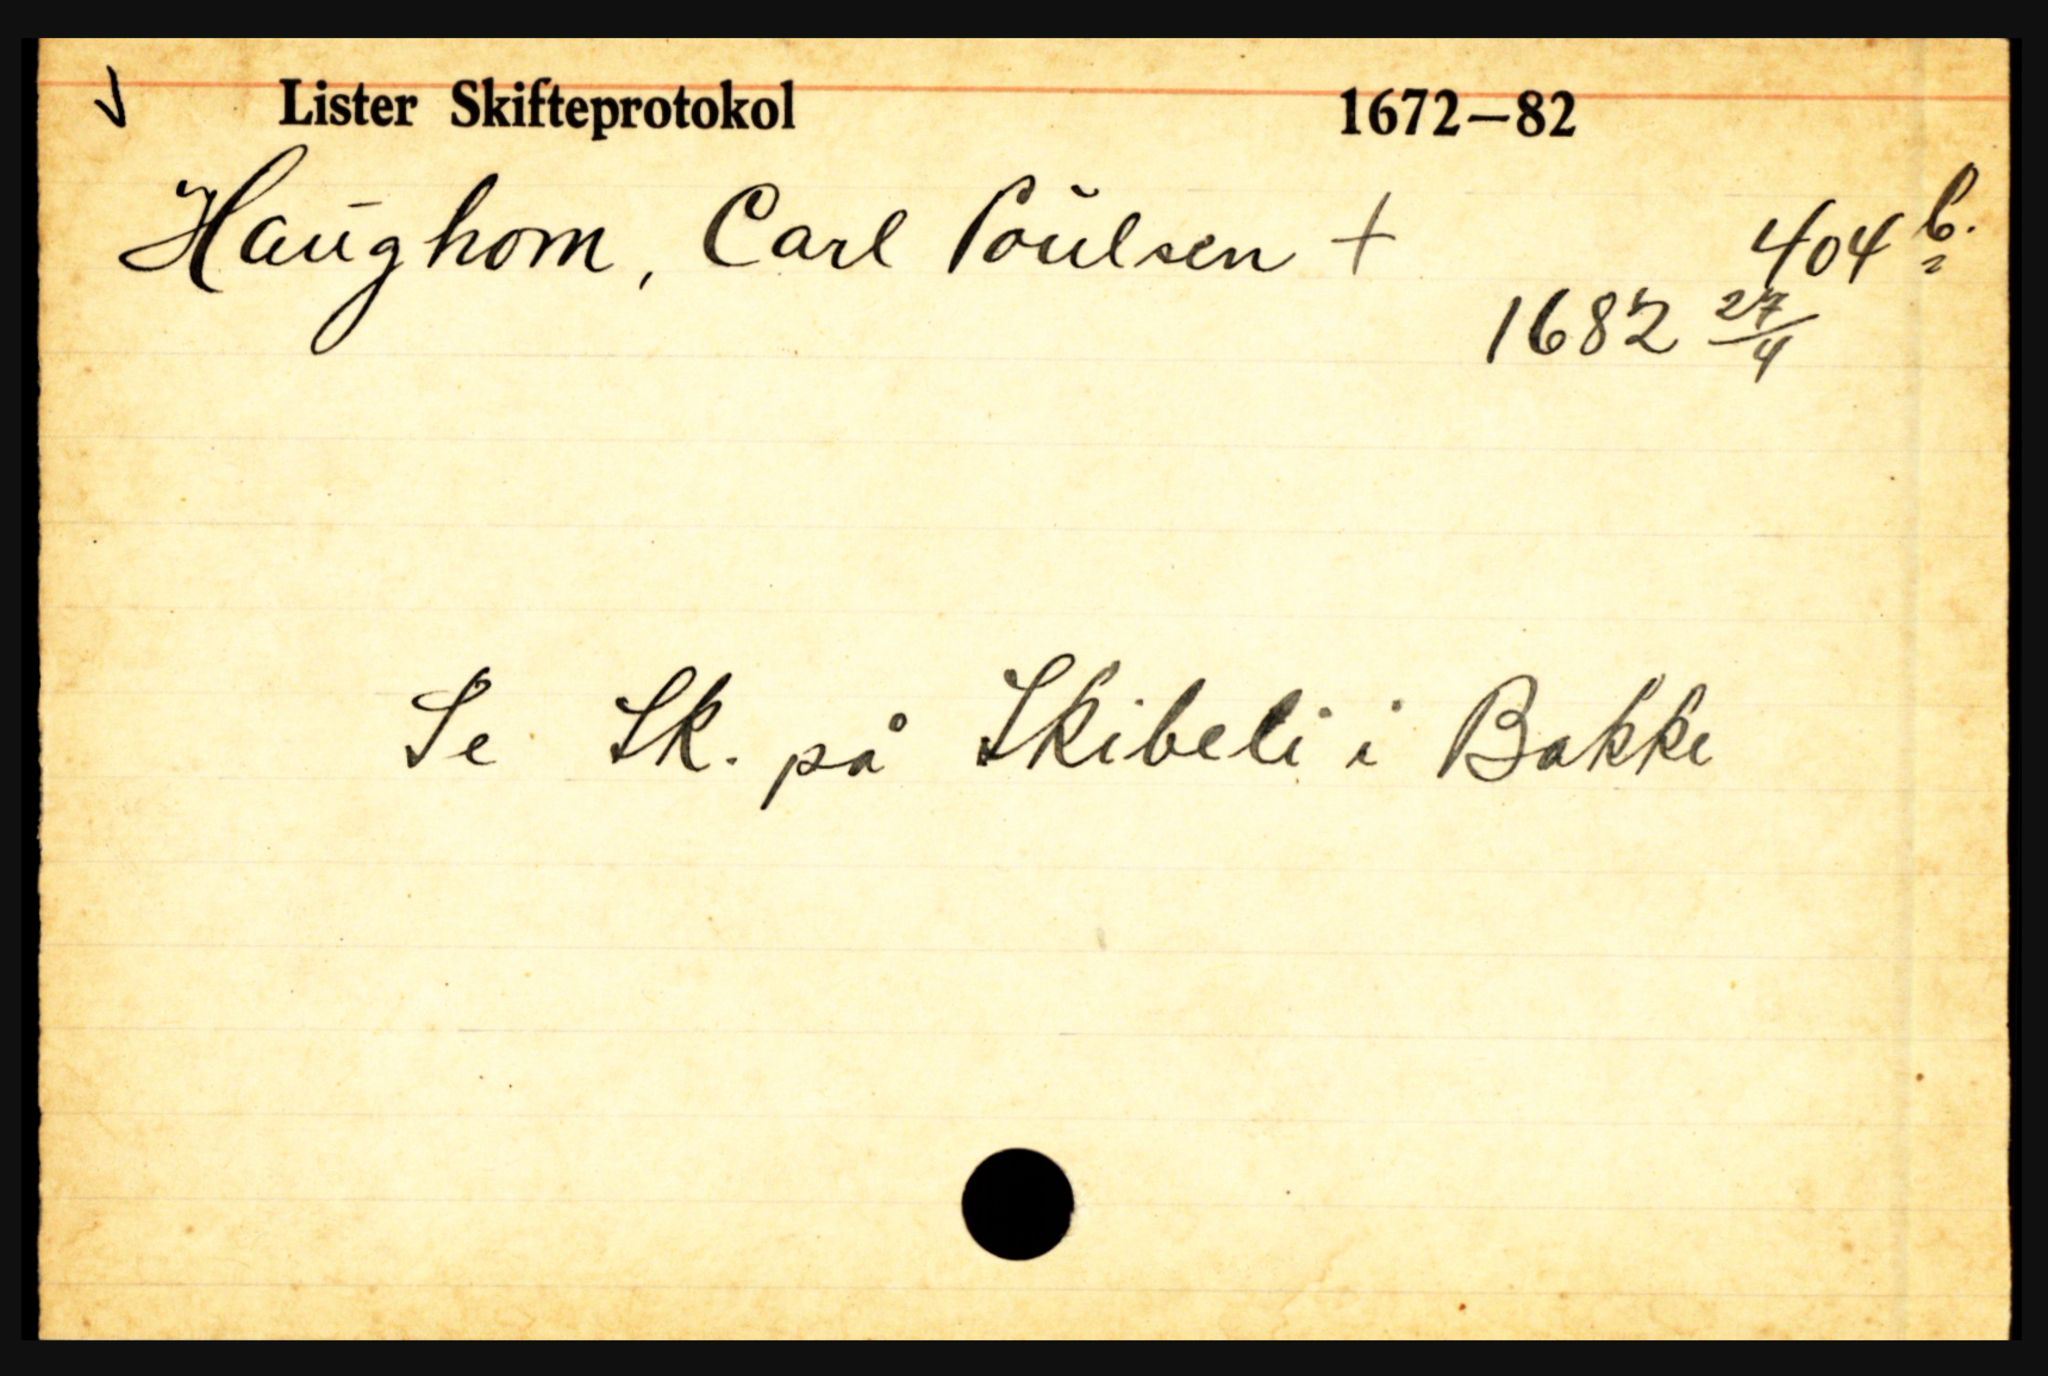 ✓ Lister Skifteprotokol 1672–82
Haughom, Carl Poulsen + 404 b.
1682 27/4
Se Sk. på Skibeli i Bakke